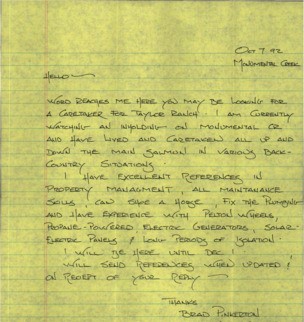 Oct 7, 92
Monumental Creek
Hello —
Word reaches me here you may be looking for
a caretaker for Taylor Ranch. I am currently
watching an inholding on Monumental Cr.
and have lived and caretaken all up and
down the main Salmon in various back-
country situations.
I have excellent references in
property managment, all maintanance
skills, can shoe a horse, fix the plumbing
and have experience with Pelton wheels,
propane-powered electric generators, solar-
electric panels & long periods of isolation.
I will be here until Dec 1
Will send references when updated &
on receipt of your reply —
Thanks
Brad Pinkerton